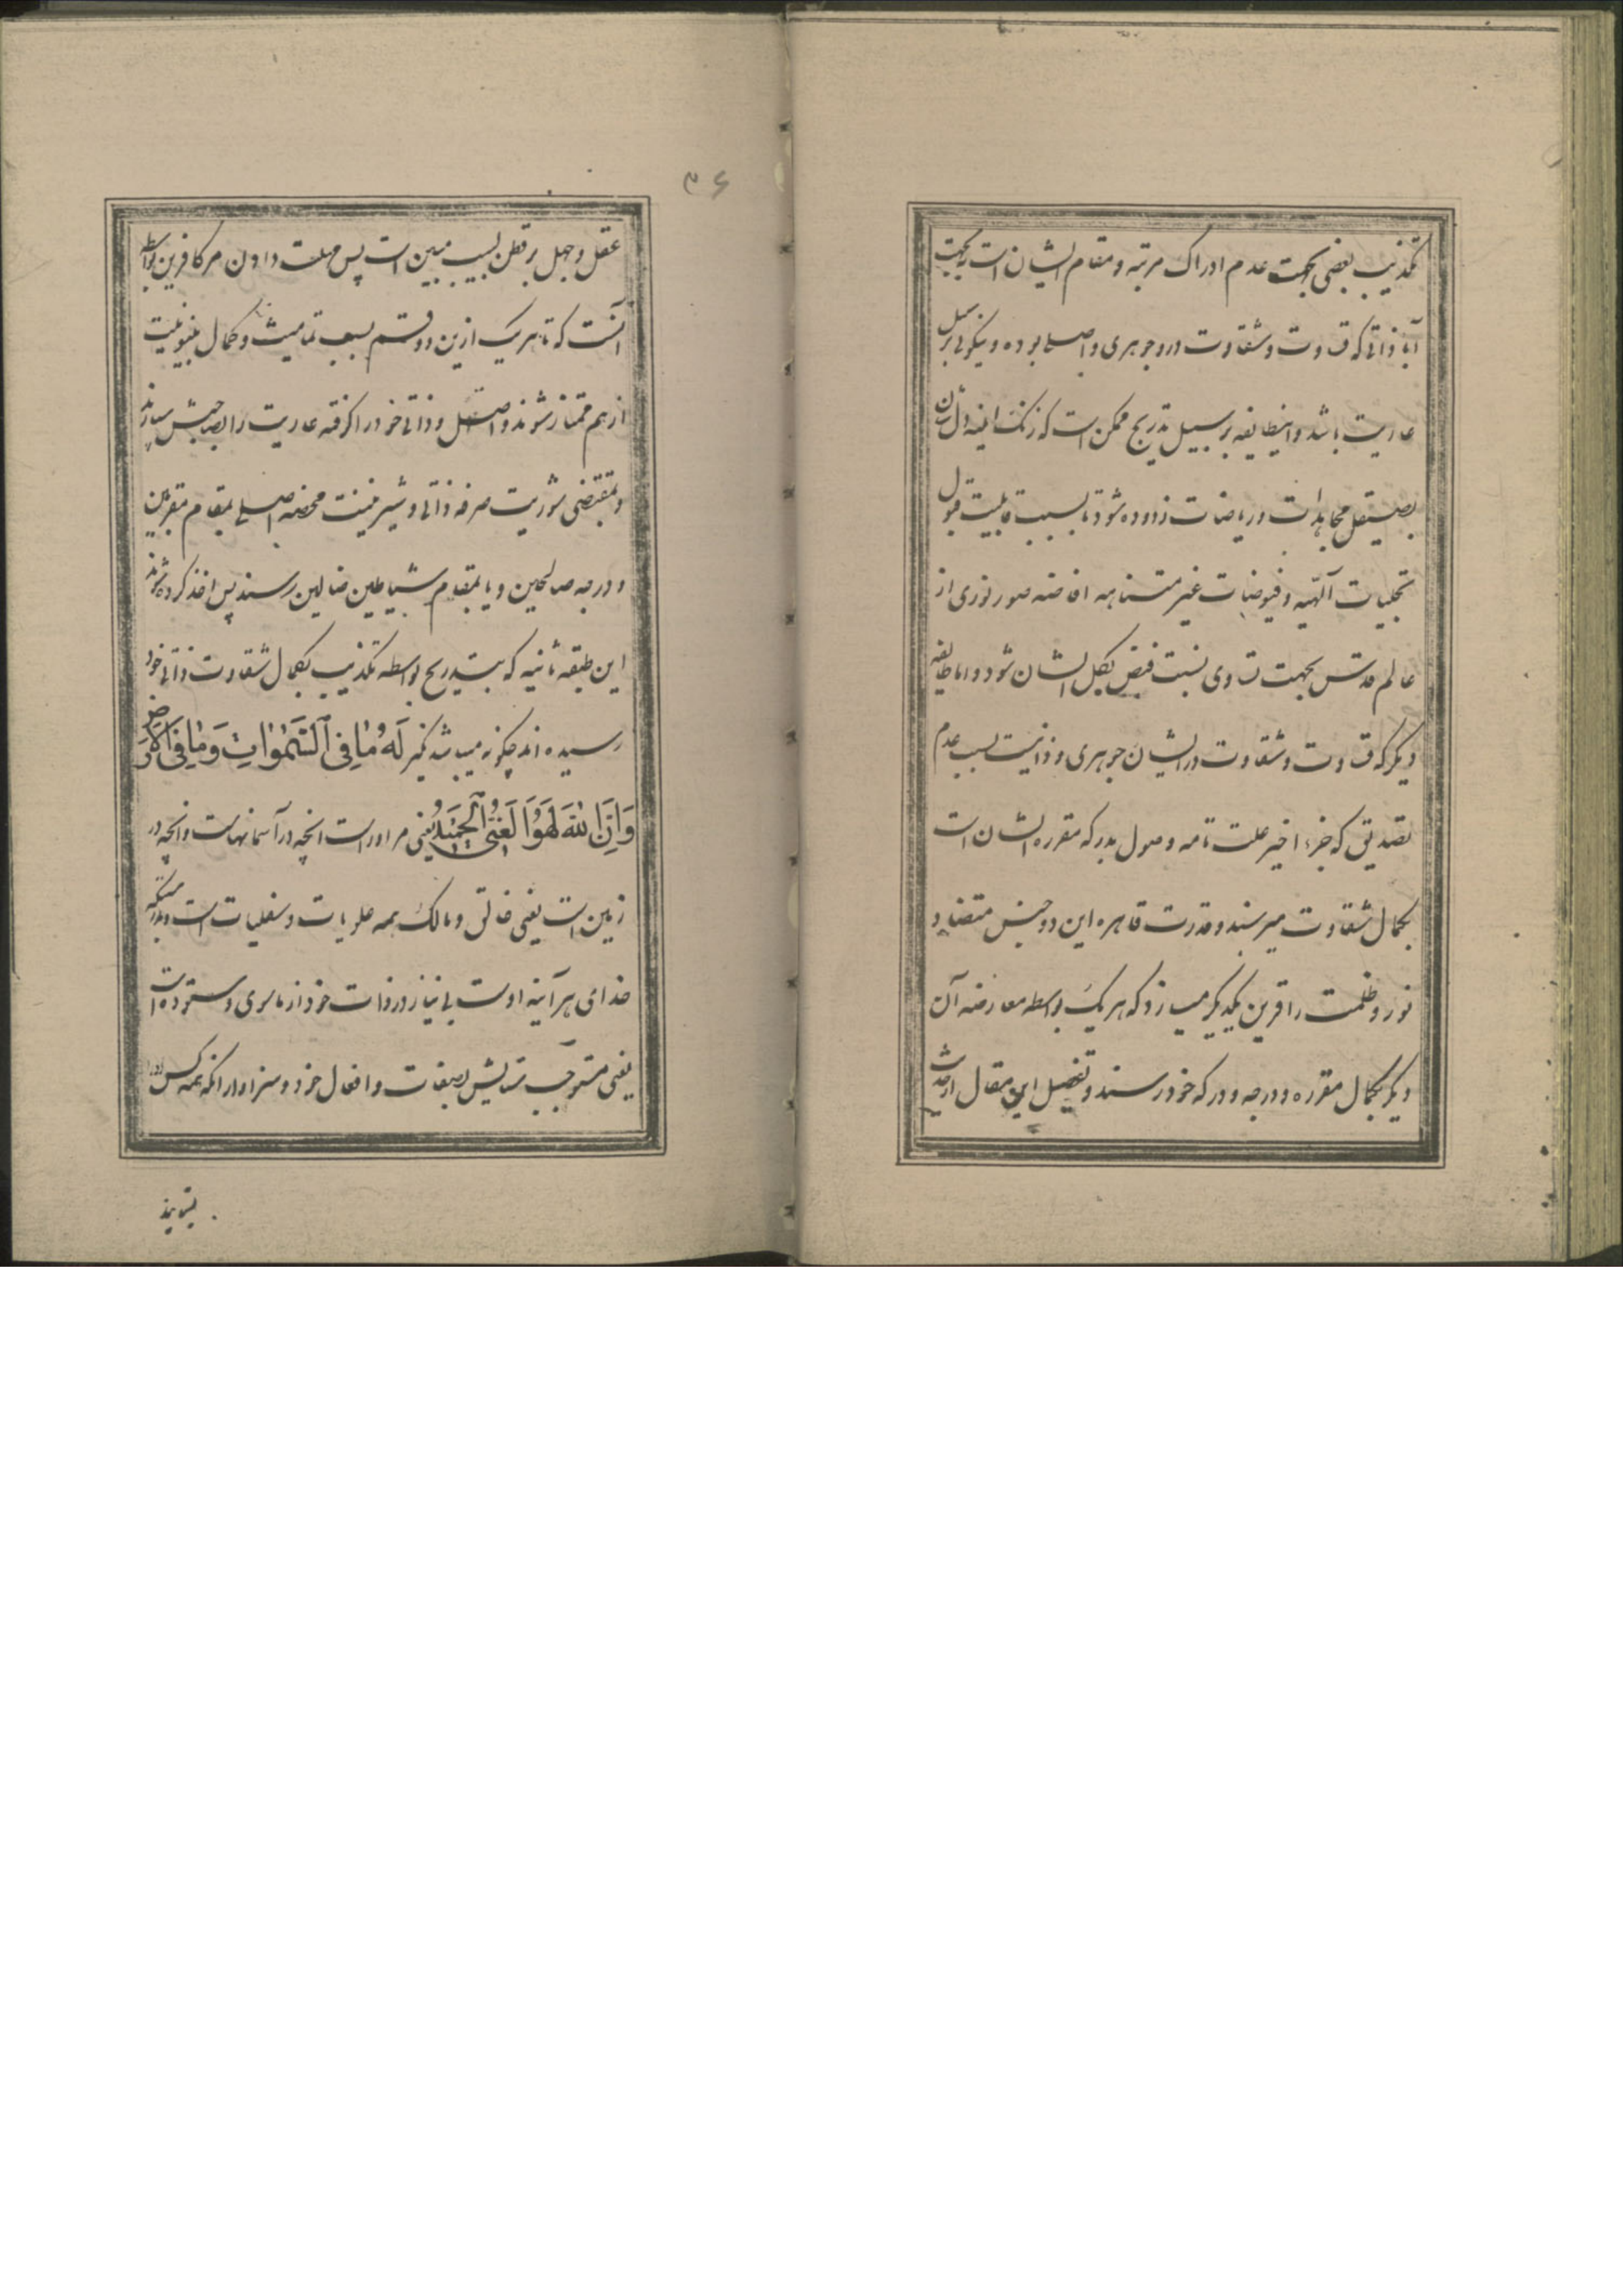 تکذیب بعضی بجهت عدم ادراک مرتبه و مقام ایشان است نه بجهت
آباء ذاتی که قساوت و شقاوت در وجوهری و اصلی بوده و نیکوئی بر سبیل
عاریت باشد و اینطایفه بر سبیل تدریج ممکن است که زنک اینه دل شان
بصیقل مجاهدات و ریاضات زدوده شود تا بسبب قابلیت قبول
تجلیات آلهیه و فیوضات غیر متناهیه افاضه صور نوری از
عالم قدس بجهت تساوی نسبت فیض بکل ایشان شود و اما طایفه
دیگر که قساوت و شقاوت در ایشان جوهری و ذاتیست بسبب عدم
تصدیق که جزء اخیر علت تامه وصول بدرکه مقرره ایشان است
بکمال شقاوت میرسند و قدرت قاهره این دو جنس متضاد
نور و ظلمت را قرین یکدیگر میسازد که هر یک بواسطه معارضه آن
دیگر بکمال مقرره و درجه و درکه خود رسند و تفصیل این مقال از حدیث
۳۶
عقل و جهل بر فطن لبیب مبین است پس مهلت دادن مر کافرین بواسطه
آنست که تا هر یک ازین دو قسم بسبب تمامیت و کمال بینونیت
از هم ممتاز شوند و اصل و ذاتی خود را گرفته عاریت را بصاحبش سپارند
و بمقتضی شوریت صرفه ذاتی و شیرینیت محضه اصلی بمقام مقربین
و درجه صالحین و یا بمقام شیاطین ضالین رسند پس اخذ کرده شوند
این طبقه ثانیه که بتدریج بواسطه تکذیب بکمال شقاوت ذاتی خود
رسیده اند چگونه میباشد نکیر لَهُ مٰا فِی ٱلسَّمٰوٰاتِ وَمٰا فِی ٱلاَرْضِ
وَاِنَّ اللّٰهَ لَهُوَ الْغَنِیُّ الْحَمیٖدُ یعنی مر اوراست انچه در آسمانهاست و انچه در
زمین است یعنی خالق و مالک همه علویات و سفلیات است و بدرستیکه
خدای هر آینه اوست بی نیاز در ذات خود از ماسوی و ستوده است
یعنی مستوجب ستایش بصفات و افعال خود و سزاوار انکه همه کس او را
بستایند